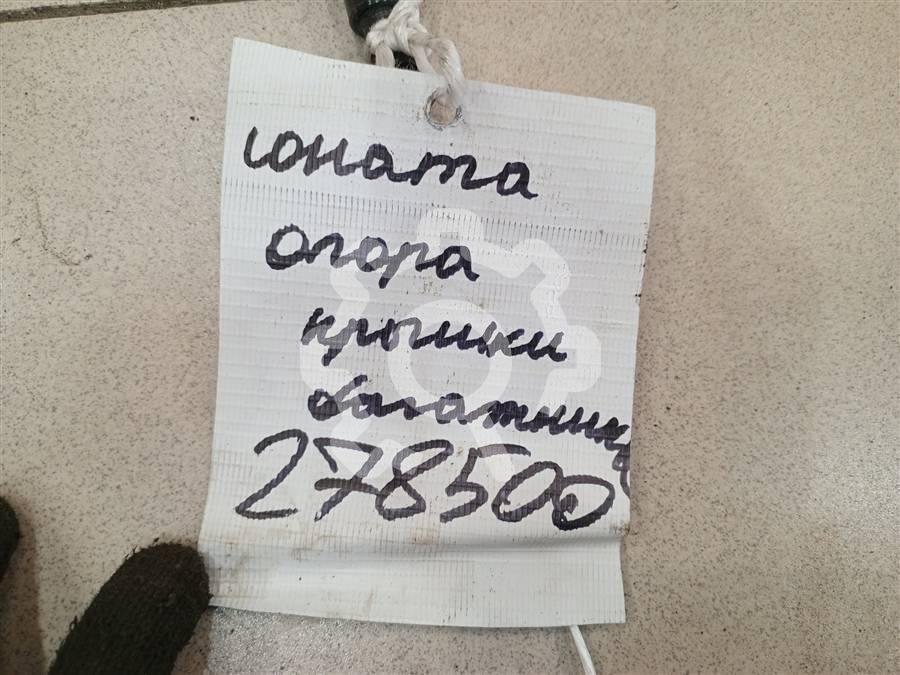 соната
опора
крышки
багажника
278500